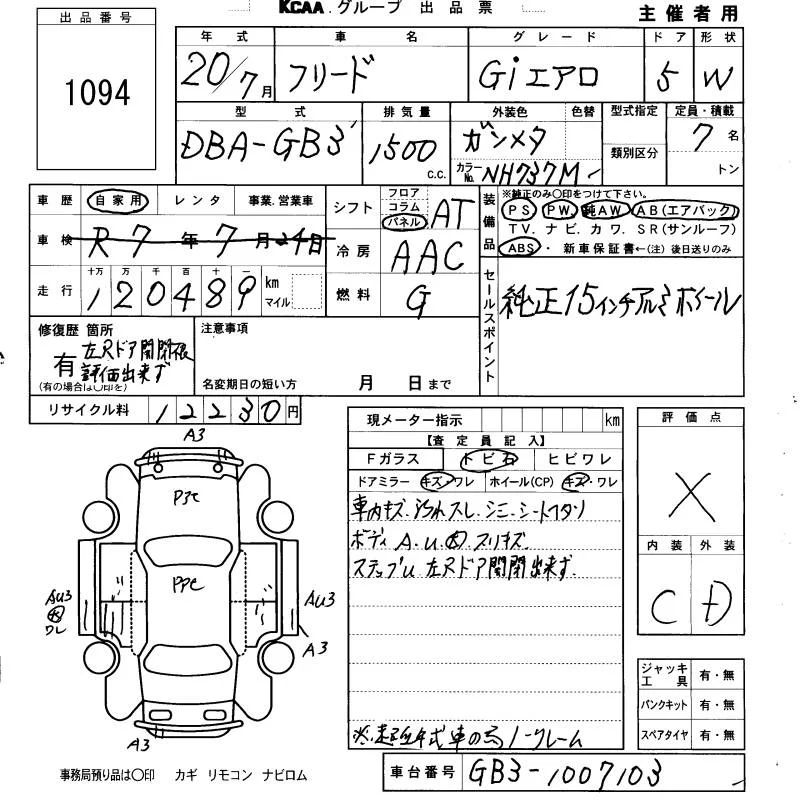 KCAA グループ 出品票
主催者用
出品番号
1094
年式 車名 グレード ドア 形状
20/7月 フリード Giエアロ 5 W
型式 排気量 外装色 色替 型式指定 定員・積載
DBA-GB3 1500 c.c. ガンメタ 7名
カラーNo. NH737M 類別区分 トン
車歴 自家用 レンタ 事業.営業車
シフト フロア コラム パネル AT
装備品 ※純正のみ〇印をつけて下さい。
PS PW. 純AW. AB(エアバック)
T V. ナビ. カワ. S R(サンルーフ)
ABS・ 新車保証書←(注)後日送りのみ
車検 R7年7月24日
冷房 AAC
走行 十万 万 千 百 十 一
120489 km マイル
燃料 G
セールスポイント
純正15インチアルミホイール
修復歴 箇所
有
左Rドア開閉
評価出来ず
(有の場合は〇印を)
注意事項
名変期日の短い方 月 日まで
リサイクル料 12230円
現メーター指示 km
【査定員記入】
Fガラス トビ石 ヒビワレ
ドアミラー キズ・ワレ ホイール(CP) キズ・ワレ
車内キズ.汚れスレ.シミ.シートヘタリ
ボディ A.U.スリキズ.
ステップU 左Rドア開閉出来ず.
※.超低年式車の為ノークレーム
評価点
X
内装 外装
C D
ジャッキ工具 有・無
パンクキット 有・無
スペアタイヤ 有・無
A3
P3C
PPC
AU3
ワレ
AU3
A3
A3
事務局預り品は〇印 カギ リモコン ナビロム
車台番号 GB3-1007103